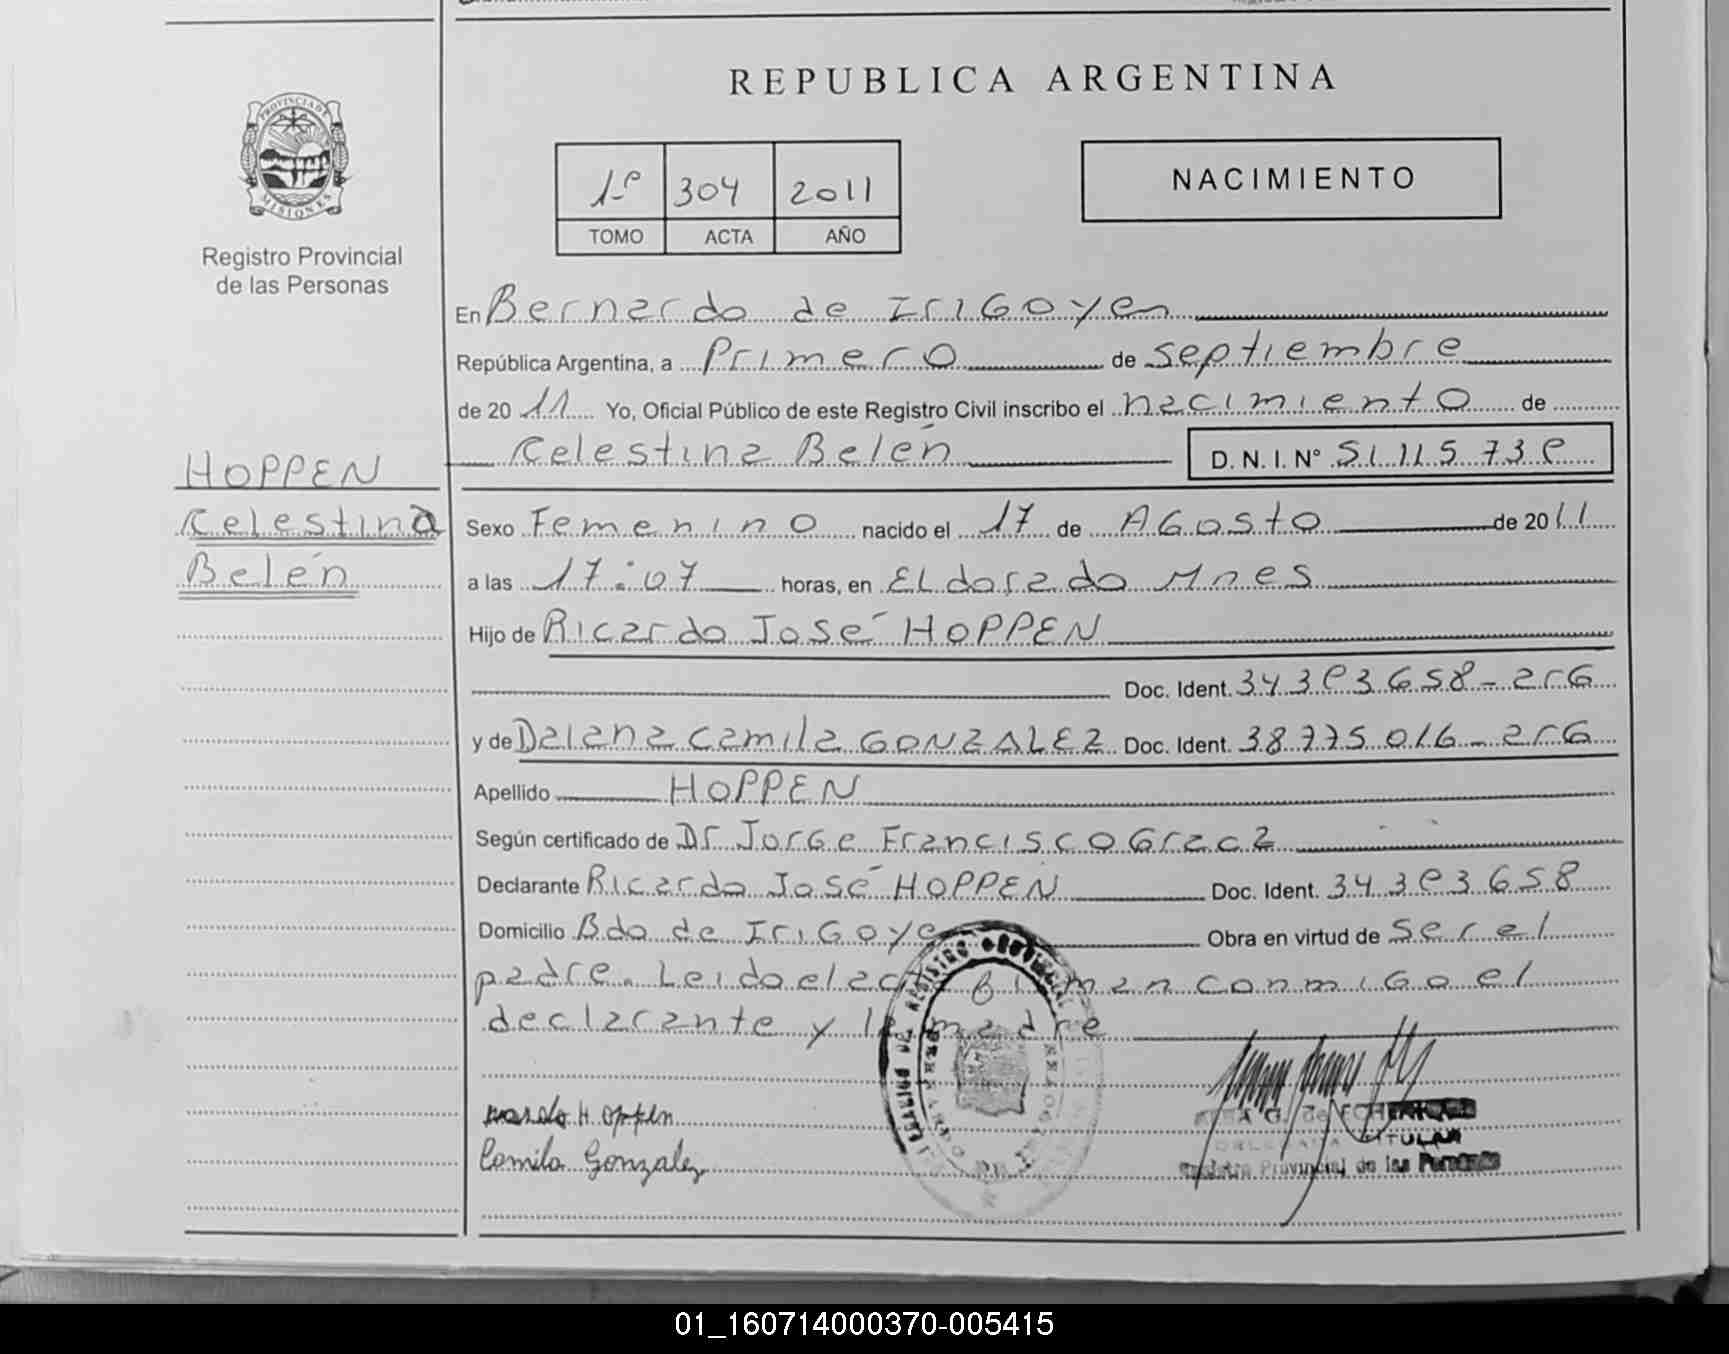 REPUBLICA ARGENTINA
PROVINCIA DE
MISIONES
Registro Provincial
de las Personas
1º 304 2011
TOMO ACTA AÑO
NACIMIENTO
En Bernardo de Irigoyen
República Argentina, a Primero de septiembre
de 20 11 Yo, Oficial Público de este Registro Civil inscribo el nacimiento de
Celestina Belén D. N. I. N°
HOPPEN
Celestina
Belén
Sexo Femenino nacido el 17 de Agosto de 2011
a las 17:07 horas, en Eldorado Mnes
Hijo de Ricardo José HOPPEN
Doc. Ident.
y de Daiana Camila GONZALEZ Doc. Ident. 38 775 016 - arg
Apellido HOPPEN
Según certificado de Dr Jorge Francisco
Declarante Ricardo José HOPPEN Doc. Ident.
Domicilio Bdo de Irigoye Obra en virtud de ser el
padre. Leido el acta firman conmigo el
declarante y la madre
Hoppen
Camila Gonzalez
TITULAR
Registro Provincial de las Personas
01_160714000370-005415